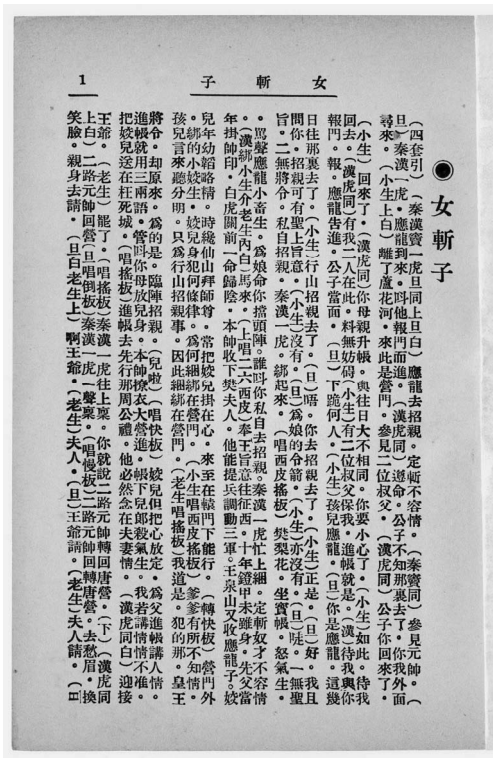 女斬子
1
●女斬子
(四套引)(秦漢竇一虎旦同上旦白)應龍去招親。定斬不容情。(秦竇同)參見元帥。(
旦)秦漢一虎。應龍到來。呌他報門而進。(漢虎同)遵命。公子不知那裏去了。你我外面
尋來。(小生上白)離了蘆花河。來此是營門。參見二位叔父。(漢虎同)公子你回來了。
(小生)回來了。(漢虎同)你母親升帳。與往日大不相同。你要小心了。(小生)如此。待我
回去。(漢虎同)有我二人在此。料無妨碍(小生)有二位叔父保我。進帳就是。(漢)待我與你
報門。報。應龍告進。公子當面。(旦)下跪何人。(小生)孩兒應龍。(旦)你是應龍。這幾
日往那裏去了。(小生)行山招親去了。(旦)唔。你去招親去了。(小生)正是。(旦)好。我且
問你。招親可有聖上旨意。(小生)沒有。(旦)爲娘的令箭。(小生)亦沒有。(旦)唗。一無聖
旨。二無將令。私自招親。秦漢一虎。綁起來。(唱西皮搖板)樊梨花。坐寶帳。怒氣生。
。罵聲應龍小畜生。爲娘命你擋頭陣。誰呌你私自去招親。秦漢一虎忙上綑。定斬奴才不容情
。(漢綁小生介老生內白)馬來。(上唱二六西皮)奉王旨意往征西。十年鎧甲未雖身。先父當
年掛帥印。白虎關前一命歸陰。本帥收下樊夫人。他能提兵調動三軍。玉泉山又收應龍子。姣
兒年幼韜略精。時纔仙山拜師尊。常把姣兒掛在心。來至在轅門下能行。(轉快板)營門外
。綁的小姣生。姣兒身犯何條律。爲何綑綁在營門。(小生唱西皮搖板)爹爹有所不知情。
孩兒言來聽分明。只爲行山招親事。因此綑綁在營門。(老生唱搖板)我道是。犯的那。皇王
將令。却原來。爲的是。臨陣招親。(兒啦)(唱快板)姣兒但把心放定。爲父進帳講人情。
進帳就用三兩語。管呌你母放兒身。本帥撩衣大營進。帳下兒郎殺氣生。我若講情情不准。
把姣兒送在枉死城。(唱搖板)進帳去先行那周公禮。他必然念在夫妻情。(漢虎同白)迎接
王爺。(老生)罷了。(唱搖板)秦漢一虎往上稟。你就說二路元帥轉回唐營。(下)(漢虎同
上白)二路元帥回營(旦唱倒板)秦漢一虎一聲稟。(唱慢板)二路元帥回轉唐營。去愁眉。換
笑臉。親身去請。(旦白老生上)啊王爺。(老生)夫人。(旦)王爺請。(老生)夫人請。(旦